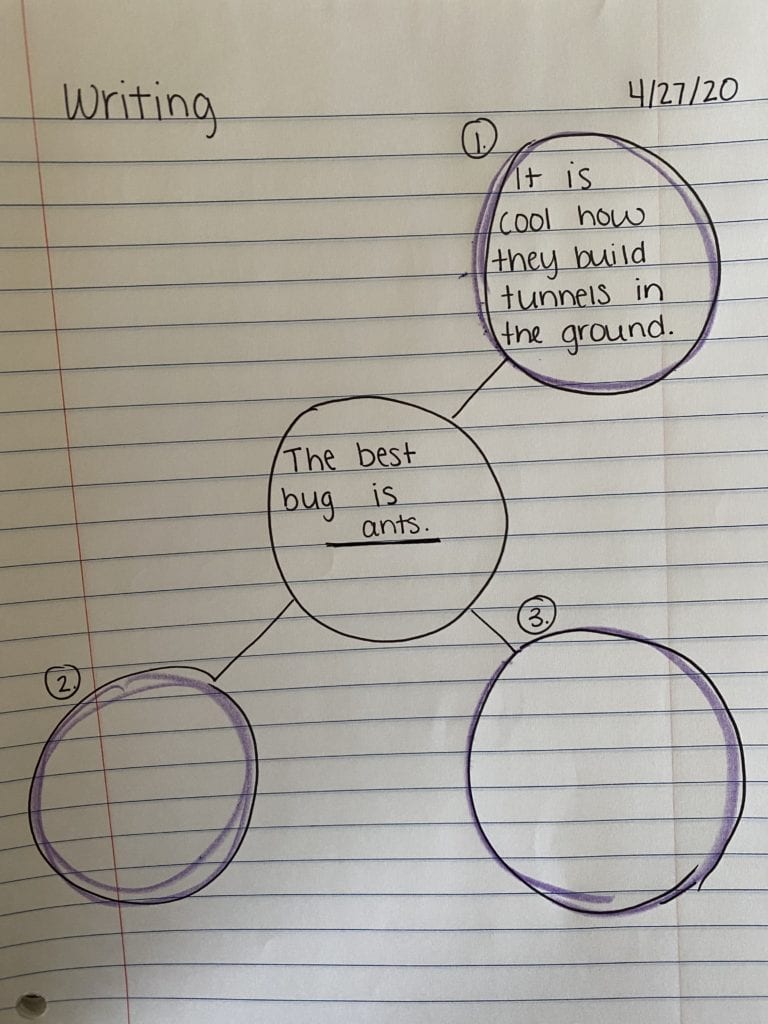 Writing
4/27/20
1.
It is
cool how
they build
tunnels in
the ground.
The best
bug is
ants.
2.
3.